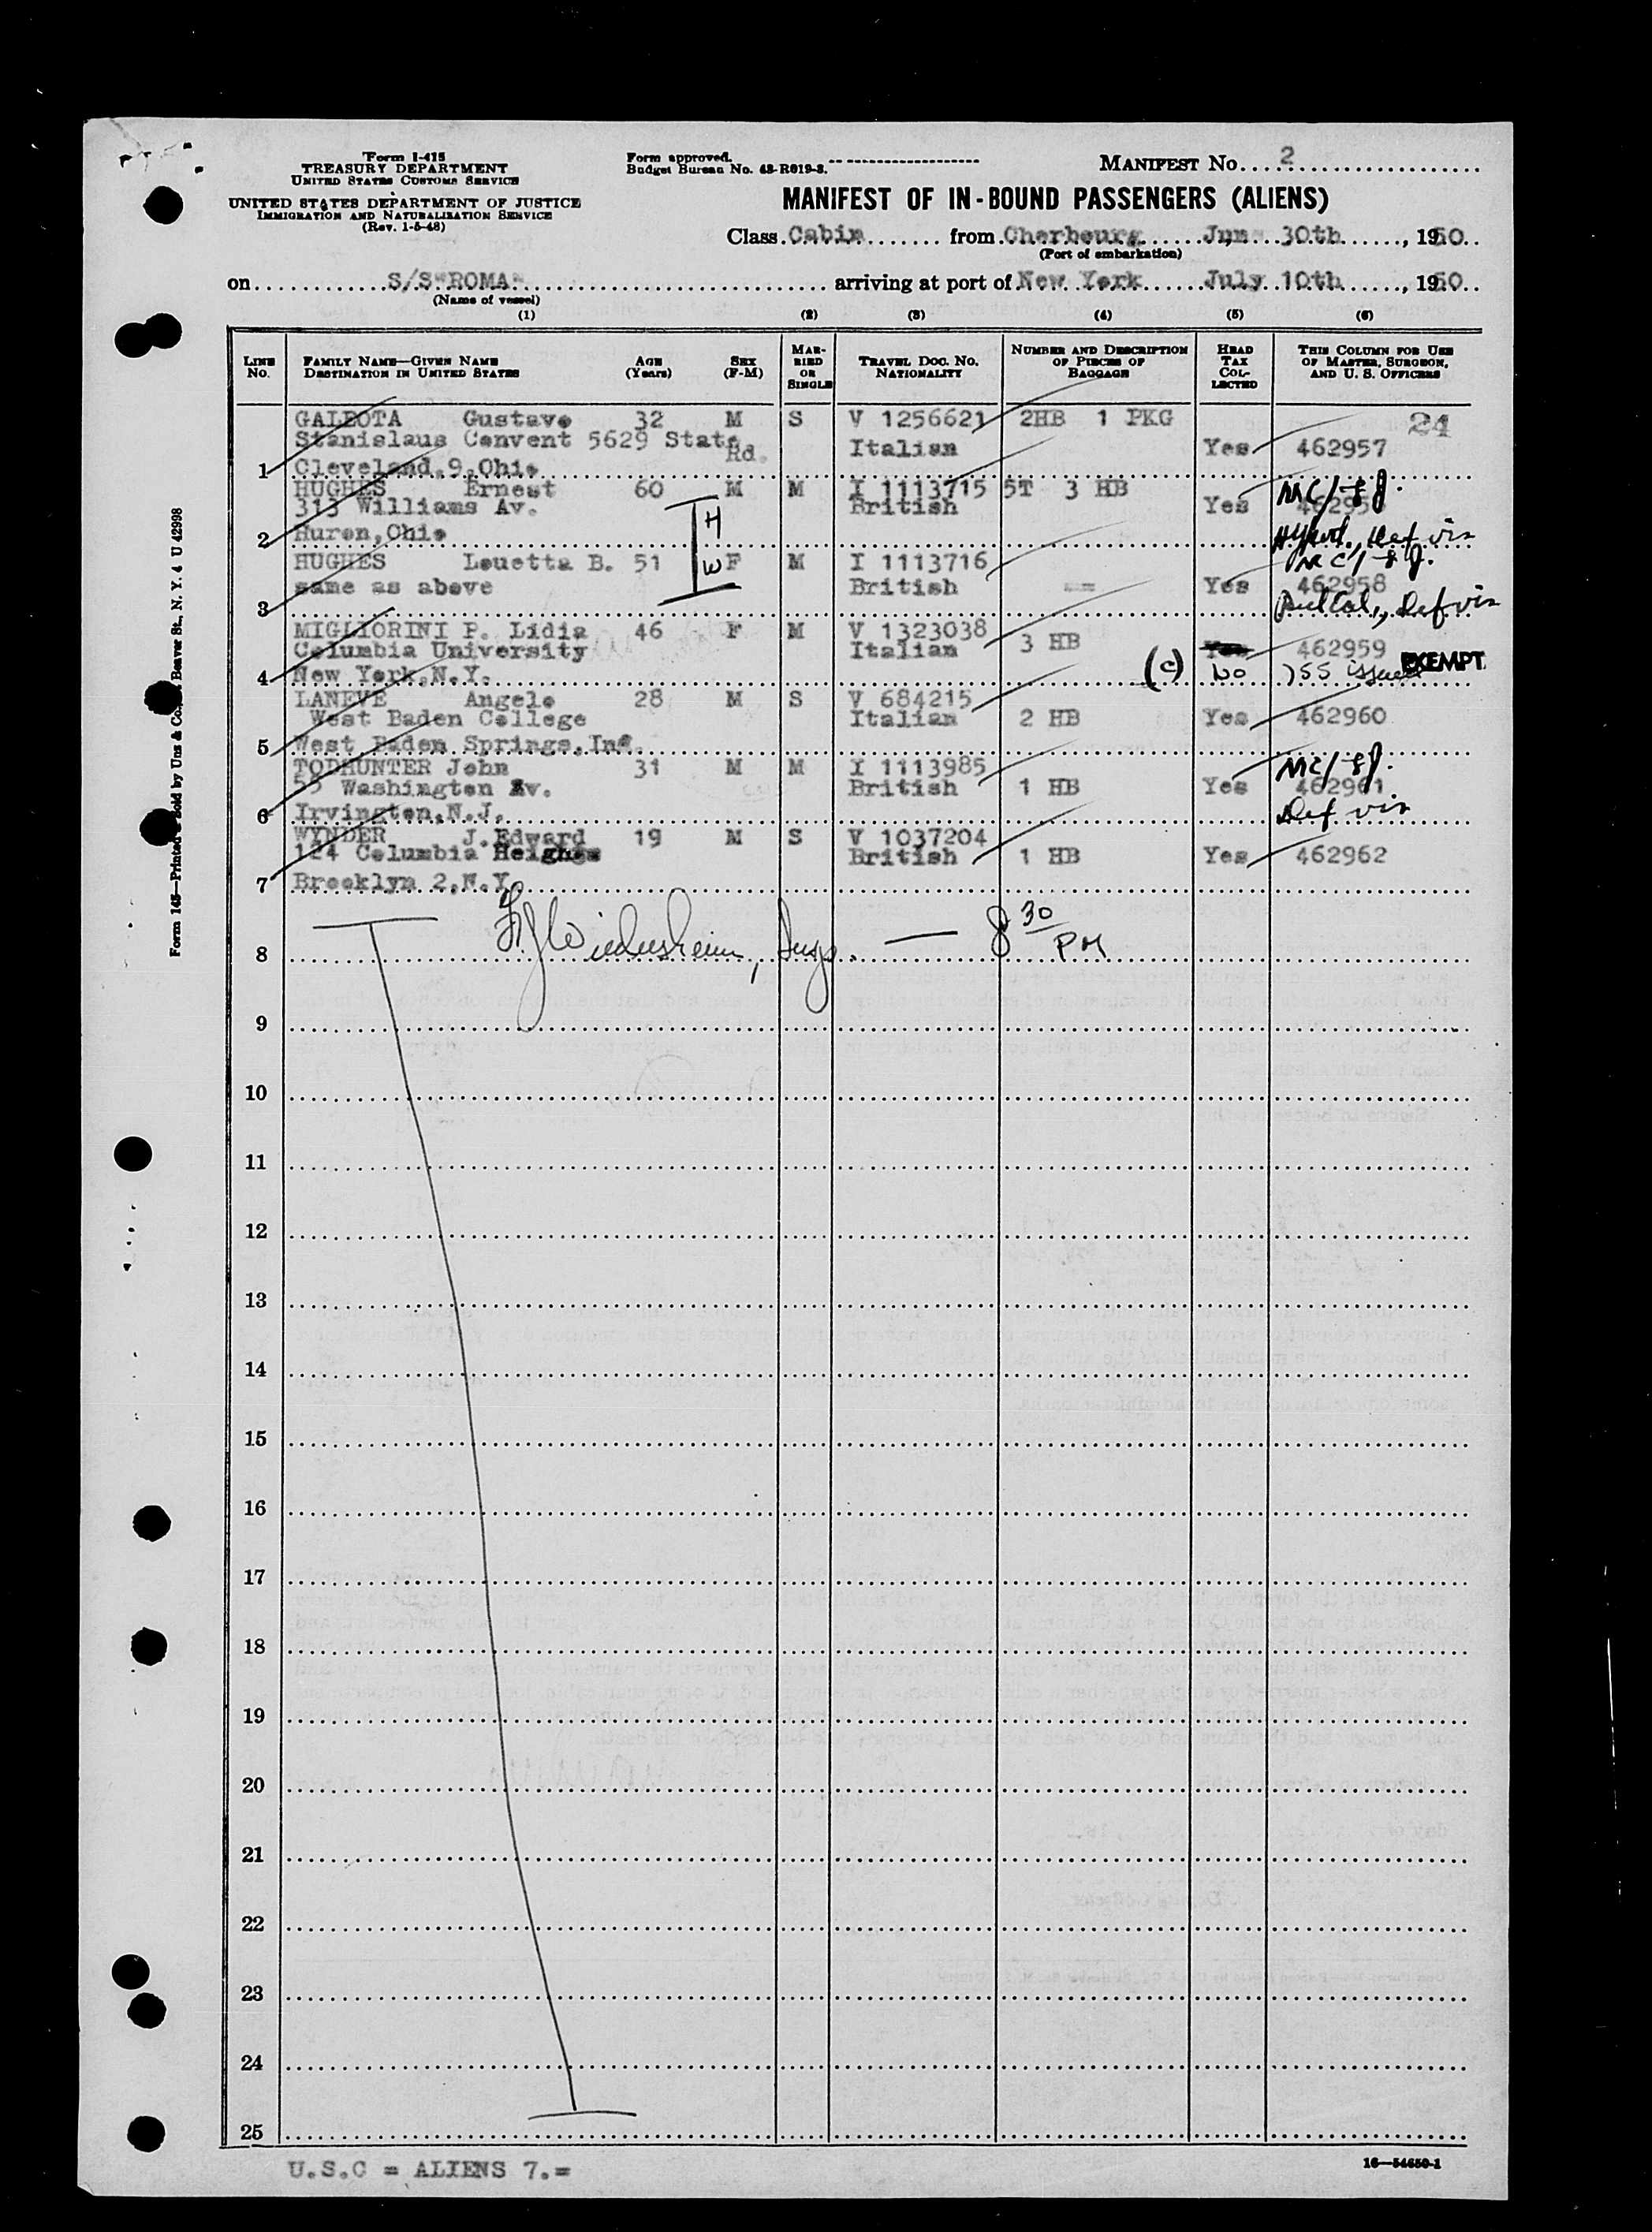 Form I-415
TREASURY DEPARTMENT
UNITED STATES CUSTOMS SERVICE
UNITED STATES DEPARTMENT OF JUSTICE
IMMIGRATION AND NATURALIZATION SERVICE
(Rev. 1-5-48)
Form approved.
Budget Bureau No. 43-R019-3.
MANIFEST No. 2
MANIFEST OF IN-BOUND PASSENGERS (ALIENS)
Class Cabin from Cherbourg June 30th, 1950
(Port of embarkation)
on S/S "ROMA" arriving at port of New York July 10th, 1950
(Name of vessel)
(1) (2) (3) (4) (5) (6)
LINE No. FAMILY NAME—GIVEN NAME DESTINATION IN UNITED STATES AGE (Years) SEX (F-M) MARRIED OR SINGLE TRAVEL DOC. NO. NATIONALITY NUMBER AND DESCRIPTION OF PIECES OF BAGGAGE HEAD TAX COLLECTED THIS COLUMN FOR USE OF MASTER, SURGEON, AND U. S. OFFICERS
GALEOTA Gustavo 32 M S V 1256621 2HB 1 PKG 24
Stanislaus Convent 5629 State Rd. Italian Yes 462957
1 Cleveland,9,Ohio
HUGHES Ernest 60 M M I 1113715 5T 3 HB MC/
313 Williams Av. H British Yes
2 Huron,Ohio Def vis
HUGHES Louetta B. 51 W F M I 1113716 MC/
same as above British == Yes 462958
3 Def vis
MIGLIORINI P. Lidia 46 F M V 1323038
Columbia University Italian 3 HB Yes 462959
4 New York,N.Y. (c) no 155 issued EXEMPT
LANEVE Angelo 28 M S V 684215
West Baden College Italian 2 HB Yes 462960
5 West Baden Springs,Ind.
TODHUNTER John 31 M M I 1113985 MC/
55 Washington Av. British 1 HB Yes 462961
6 Irvington,N.J. Def vis
WYNDER J.Edward 19 M S V 1037204
124 Columbia Heights British 1 HB Yes 462962
7 Brooklyn 2,N.Y.
8 Insp. — 8 30 PM
9
10
11
12
13
14
15
16
17
18
19
20
21
22
23
24
25
U.S.C = ALIENS 7.=
16—54650-1
Form 145—Printed & Sold by Unz & Co., Beaver St., N. Y. 4 U 42998